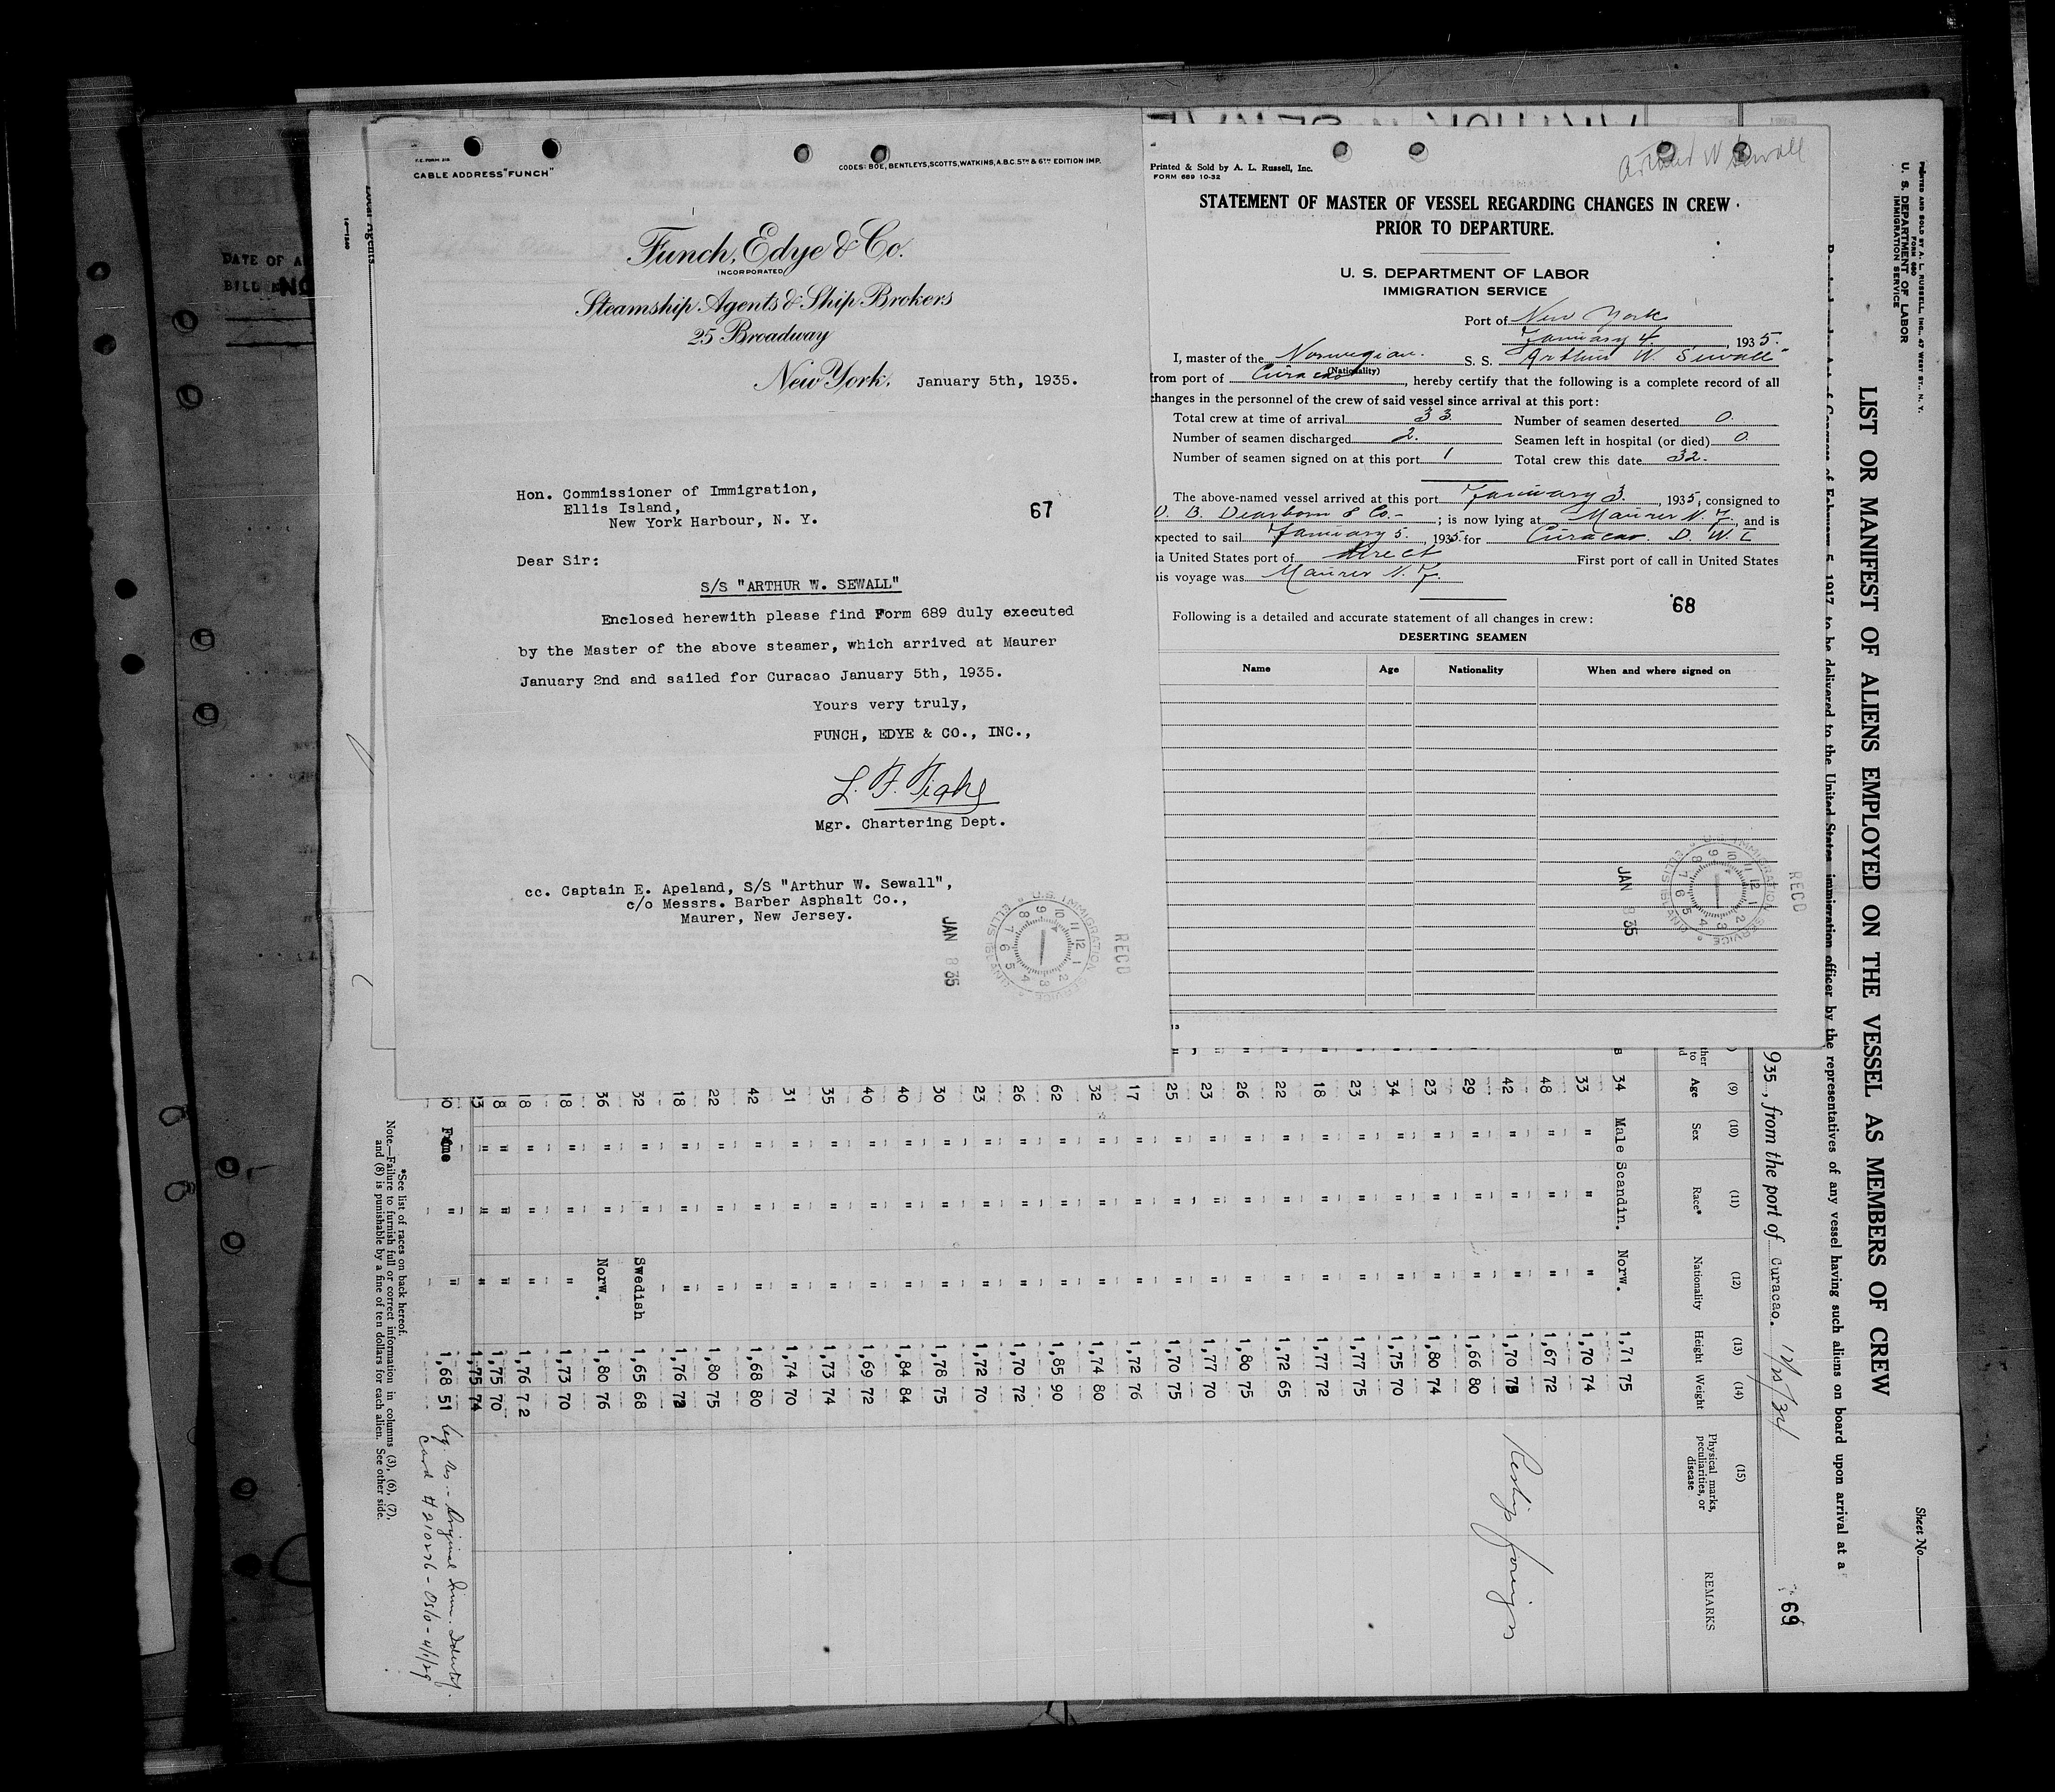 F.E. FORM 215
CABLE ADDRESS "FUNCH"
CODES: BOE, BENTLEYS, SCOTTS, WATKINS, A.B.C. 5TH & 6TH EDITION IMP.
Funch, Edye & Co.
INCORPORATED
Steamship Agents & Ship Brokers
25 Broadway
New York, January 5th, 1935.
Hon. Commissioner of Immigration,
Ellis Island,
New York Harbour, N. Y.
67
Dear Sir:
S/S "ARTHUR W. SEWALL"
Enclosed herewith please find Form 689 duly executed
by the Master of the above steamer, which arrived at Maurer
January 2nd and sailed for Curacao January 5th, 1935.
Yours very truly,
FUNCH, EDYE & CO., INC.,
Mgr. Chartering Dept.
cc. Captain E. Apeland, S/S "Arthur W. Sewall",
c/o Messrs. Barber Asphalt Co.,
Maurer, New Jersey.
JAN 8 35
U.S. IMMIGRATION SERVICE ELLIS ISLAND
RECD
Arthur W Sewall
Printed & Sold by A. L. Russell, Inc.
FORM 689 10-32
STATEMENT OF MASTER OF VESSEL REGARDING CHANGES IN CREW
PRIOR TO DEPARTURE.
U. S. DEPARTMENT OF LABOR
IMMIGRATION SERVICE
Port of New York
January 4, 1935.
I, master of the Norwegian. S. S. "Arthur W. Sewall"
(Nationality)
from port of Curacao, hereby certify that the following is a complete record of all
changes in the personnel of the crew of said vessel since arrival at this port:
Total crew at time of arrival 33 Number of seamen deserted 0.
Number of seamen discharged 2. Seamen left in hospital (or died) 0
Number of seamen signed on at this port 1 Total crew this date 32.
The above-named vessel arrived at this port January 3., 1935, consigned to
D. B. Dearborn & Co.- ; is now lying at Maurer N. J., and is
xpected to sail January 5., 1935 for Curacao. D. W. I
ia United States port of direct First port of call in United States
is voyage was Maurer N. J.
68
Following is a detailed and accurate statement of all changes in crew:
DESERTING SEAMEN
Name Age Nationality When and where signed on
JAN 8 35
U.S. IMMIGRATION SERVICE ELLIS ISLAND
RECD
DATE OF A
BILL
NO
Local Agents
PRINTED AND SOLD BY A. L. RUSSELL, INC., 47 WEST ST., N. Y.
FORM 680
U. S. DEPARTMENT OF LABOR
IMMIGRATION SERVICE
Sheet No.
LIST OR MANIFEST OF ALIENS EMPLOYED ON THE VESSEL AS MEMBERS OF CREW
Act of Congress of February 5, 1917, to be delivered to the United States immigration officer by the representatives of any vessel having such aliens on board upon arrival at a
935, from the port of Curacao. 12/25/34
69
(9) (10) (11) (12) (13) (14) (15)
Age Sex Race* Nationality Height Weight Physical marks, peculiarities, or disease REMARKS
34 Male Scandin. Norw. 1,71 75
33 " " " 1,70 74
48 " " " 1,67 72
42 " " " 1,70 Reship foreign
29 " " " 1,66 80
23 " " " 1,80 74
34 " " " 1,75 70
23 " " " 1,77 75
18 " " " 1,77 72
22 " " " 1,72 65
26 " " " 1,80 75
23 " " " 1,77 70
25 " " " 1,70 75
17 " " " 1,72 76
32 " " " 1,74 80
62 " " " 1,85 90
26 " " " 1,70 72
23 " " " 1,72 70
30 " " " 1,78 75
40 " " " 1,84 84
40 " " " 1,69 72
35 " " " 1,73 74
31 " " " 1,74 70
42 " " " 1,68 80
22 " " " 1,80 75
18 " " " 1,76
32 " " Swedish 1,65 68
36 " " Norw. 1,80 76
18 " " " 1,73 70
18 " " " 1,76 72
8 " " " 1,75 70
3 " " " 1,75 74
0 " " 1,68 51
Card # 210276 - Oslo - 4/1/29
*See list of races on back hereof.
Note.—Failure to furnish full or correct information in columns (3), (6), (7),
and (8) is punishable by a fine of ten dollars for each alien. See other side.